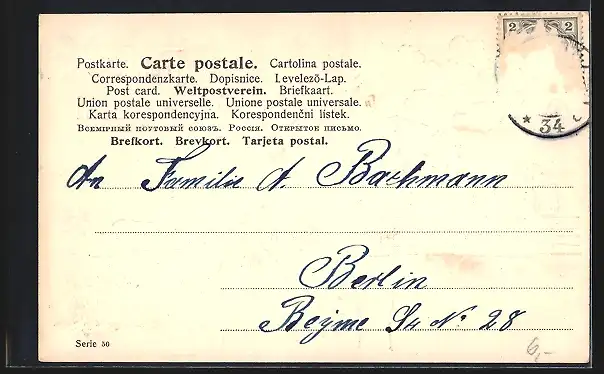 2 2
Postkarte. Carte postale. Cartolina postale.
Correspondenzkarte. Dopisnice. Levelező-Lap.
Post card. Weltpostverein. Briefkaart.
Union postale universelle. Unione postale universale.
Karta korespondencyjna. Korespondenční listek.
Всемірный почтовый союзъ. Россія. Открытое письмо.
Brefkort. Brevkort. Tarjeta postal.
* 34
An Familie A. Bachmann
Berlin
Beyme Str № 28
Serie 56
6,-